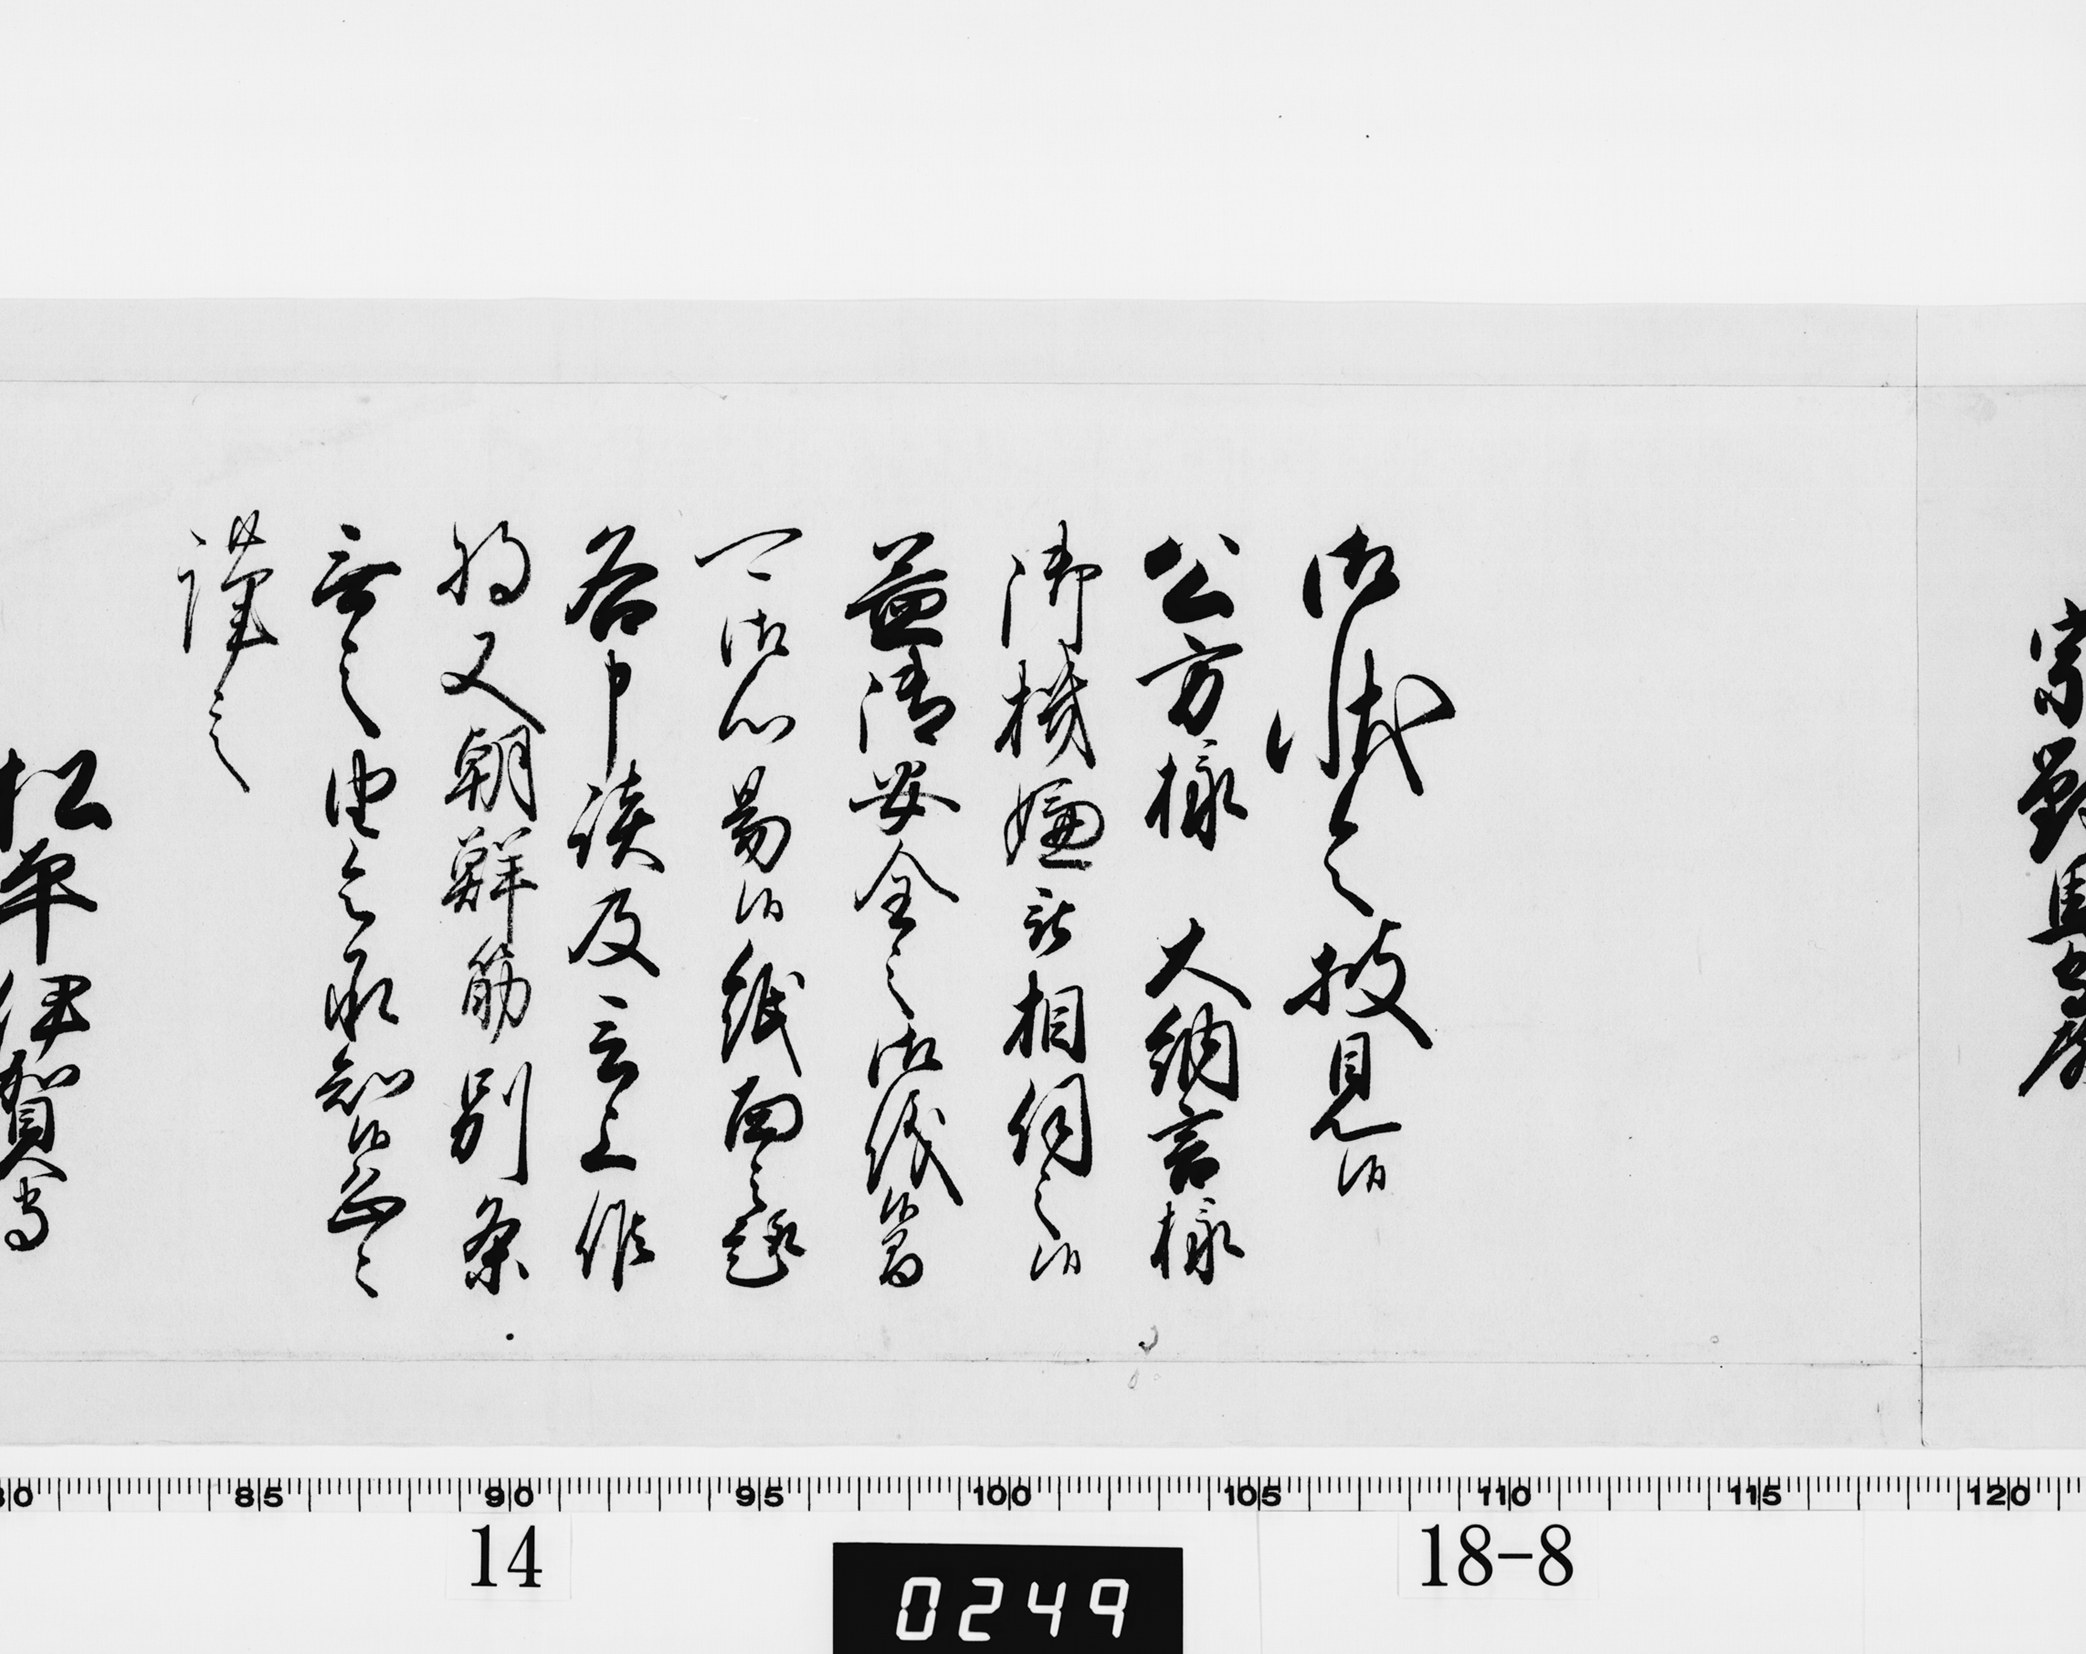 宗對馬守殿
御状令披見候
公方様 大納言様
御機嫌被相伺之候
益御安全之御儀候間
可御心易候紙面之趣
各申談及言上候
将又朝鮮筋別条
無之由令承知候恐々
謹言
松平伊賀守
80 85 90 95 100 105 110 115 120
14
18-8
0249